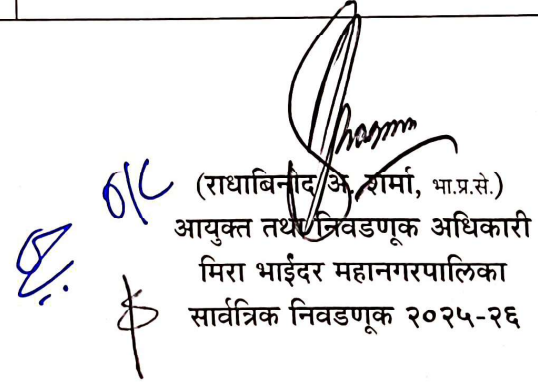 (राधाबिनोद अ. शर्मा, भा.प्र.से.)
आयुक्त तथा निवडणूक अधिकारी
मिरा भाईंदर महानगरपालिका
सार्वत्रिक निवडणूक २०२५-२६